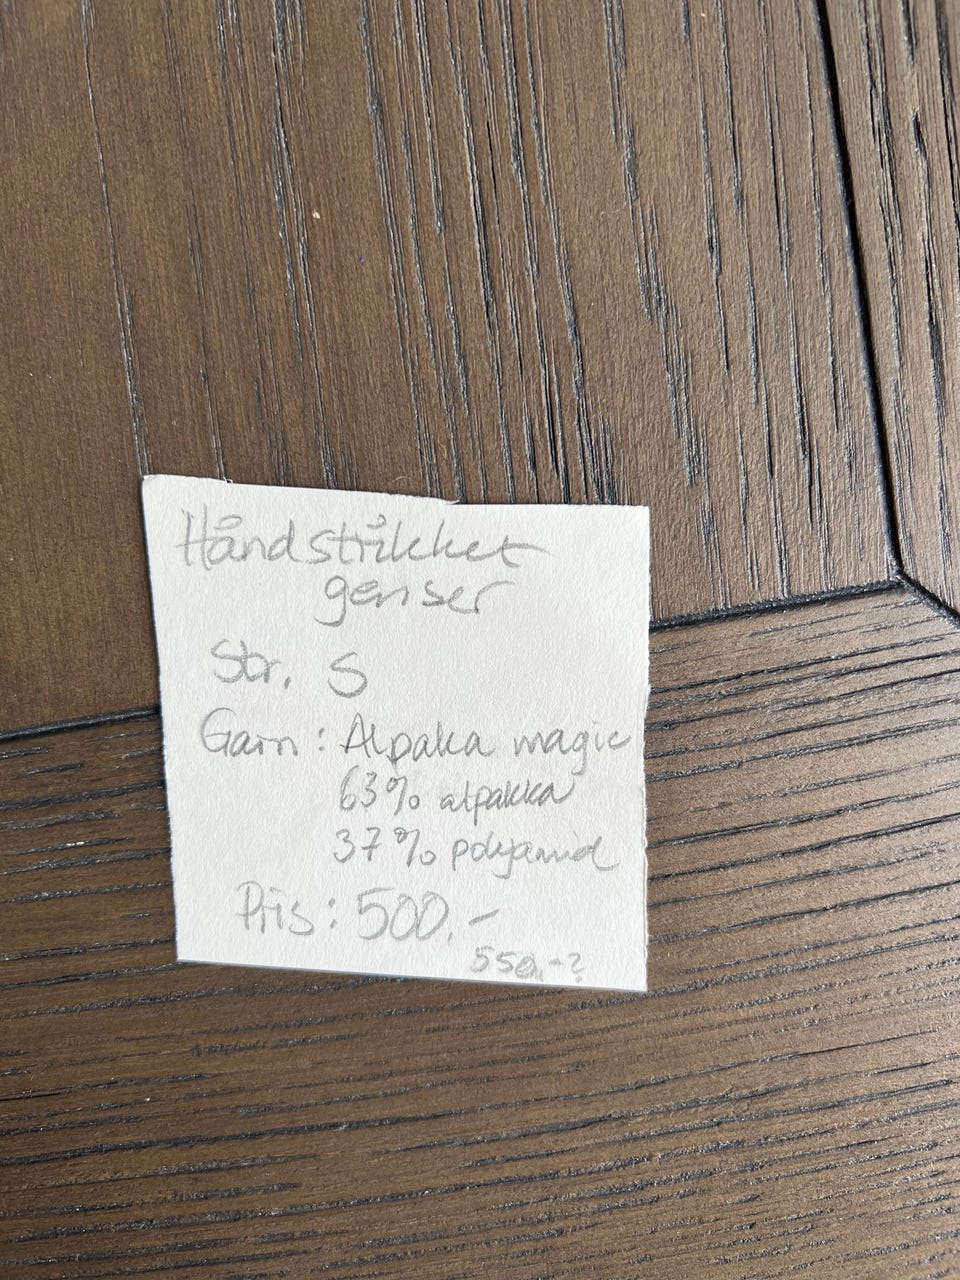 Håndstrikket
genser
Str. S
Garn: Alpaka magic
63% alpakka
37% polyamid
Pris: 500,-
550,-?